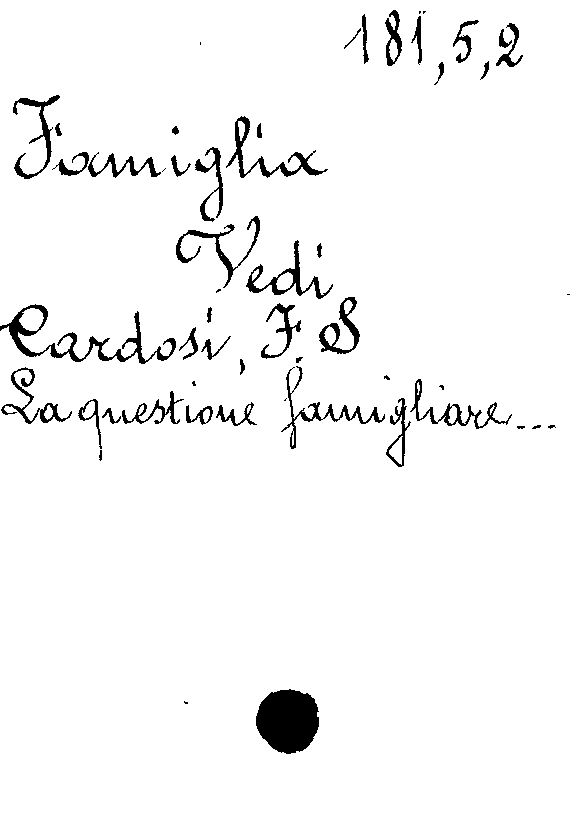 181,5,2
Famiglia
Vedi
Cardosi, F. S
La questione famigliare...